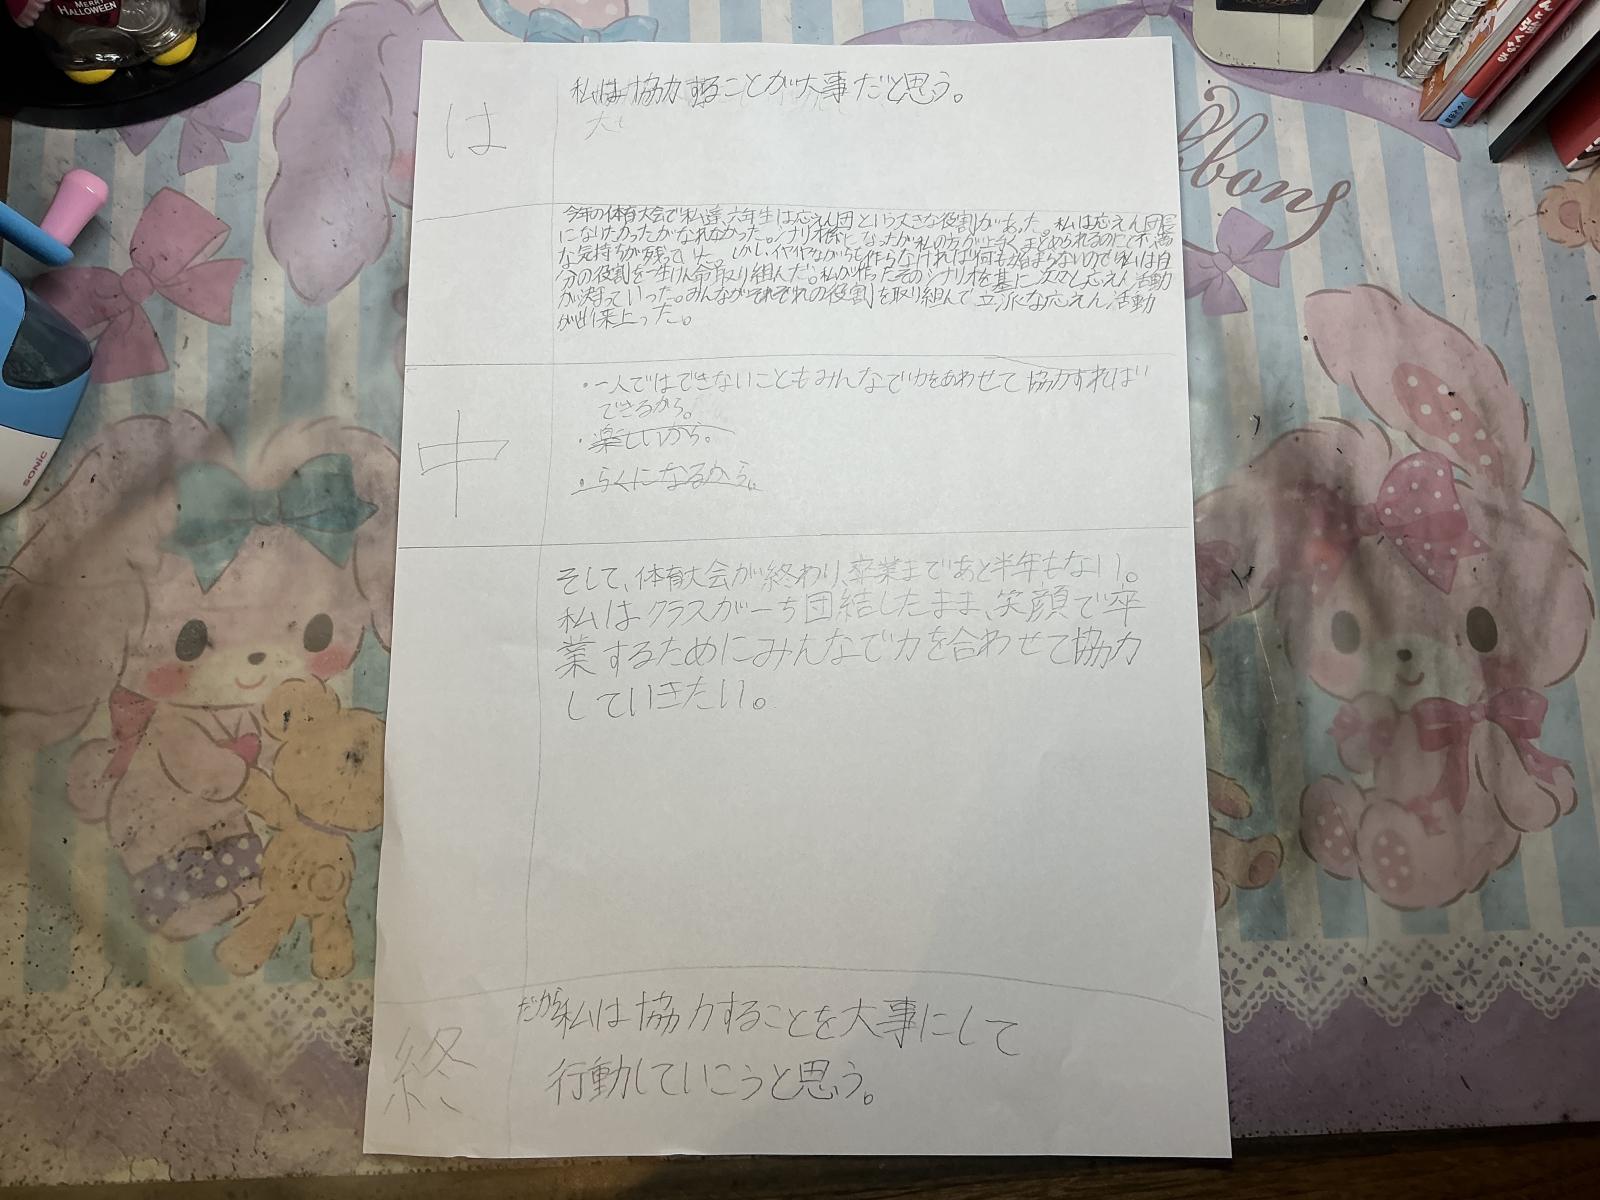 MERRY
HALLOWEEN
bbons
SONIC
は
私は協力することが大事だと思う。
今年の体育大会で私達、六年生は応えん団という大きな役割があった。私は応えん団長
になりたかったがなれなかった。シナリオ係になったが私の方が上手くまとめられるのにて不満
な気持ちが残っていた。しかし、イヤイヤながらも作らなければ何も始まらないので私は自
分の役割を一生けん命取り組んだ。私が作ったそのシナリオを基に次々と応えん活動
が決まっていった。みんながそれぞれの役割を取り組んで立派な応えん活動
が出来上った。
中
・一人ではできないこともみんなで力をあわせて協力すれば
できるから。
・楽しいから。
・らくになるから。
そして、体育大会が終わり、卒業まであと半年もない。
私はクラスが一ち団結したまま、笑顔で卒
業するためにみんなで力を合わせて協力
していきたい。
終
だから私は協力することを大事にして
行動していこうと思う。